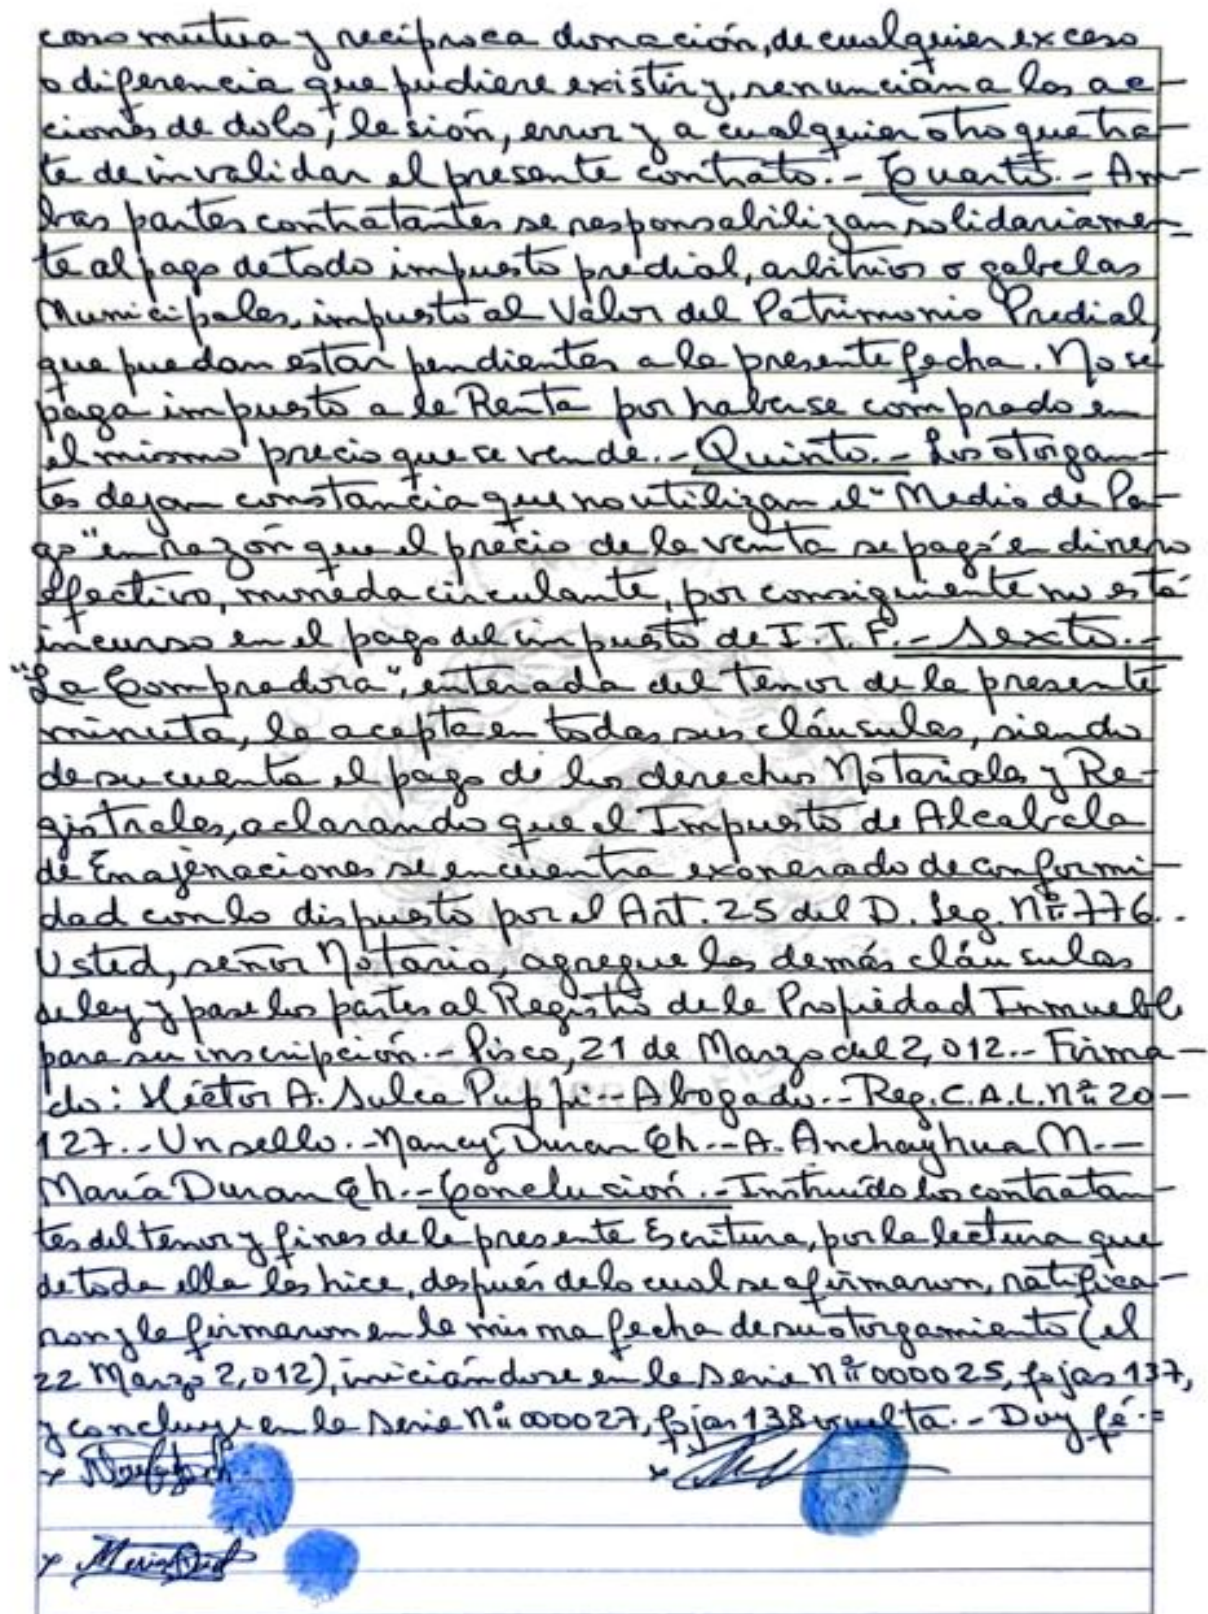 caso mútua y recíproca donación, de cualquier exceso
o diferencia que pudiere existir y, renuncian a las ac-
ciones de dolo, lesión, error y a cualquier otro que tra-
te de invalidar el presente contrato.- Cuarto.- Am-
bas partes contratantes se responsabilizan solidariamen-
te al pago de todo impuesto predial, arbitrios o gabelas
Municipales, impuesto al Valor del Patrimonio Predial
que puedan estar pendientes a la presente fecha. No se
paga impuesto a la Renta por haberse comprado en
el mismo precio que se vende.- Quinto.- Los otorgan-
tes dejan constancia que no utilizan el "Medio de Pa-
go" en razón que el precio de la venta se pagó en dinero
efectivo, moneda circulante, por consiguiente no está
incurso en el pago del impuesto de I.T.F.- Sexto.-
"La Compradora", enterada del tenor de la presente
minuta, la acepta en todas sus cláusulas, siendo
de su cuenta el pago de los derechos Notariales y Re-
gistrales, aclarando que el Impuesto de Alcabala
de Enajenaciones se encuentra exonerado de conformi-
dad con lo dispuesto por el Art. 25 del D. Leg. Nº 776.-
Usted, señor Notario, agregue las demás cláusulas
de ley y pase los partes al Registro de la Propiedad Inmueble
para su inscripción.- Pisco, 21 de Marzo del 2,012.- Firma-
do: Héctor A. Sulca Puppi.- Abogado.- Reg. C.A.L. Nº 20-
127.- Un sello.- Nancy Duran Ch.- A. Anchayhua M.-
María Duran Ch.- Conclusión.- Instruído los contratan-
tes del tenor y fines de la presente Escritura, por la lectura que
de toda ella les hice, después de lo cual se afirmaron, ratifica-
ron y la firmaron en la misma fecha de su otorgamiento (el
22 Marzo 2,012), iniciándose en la Serie Nº 000025, fojas 137,
y concluye en la Serie Nº 000027, fojas 138 vuelta.- Doy fé.=